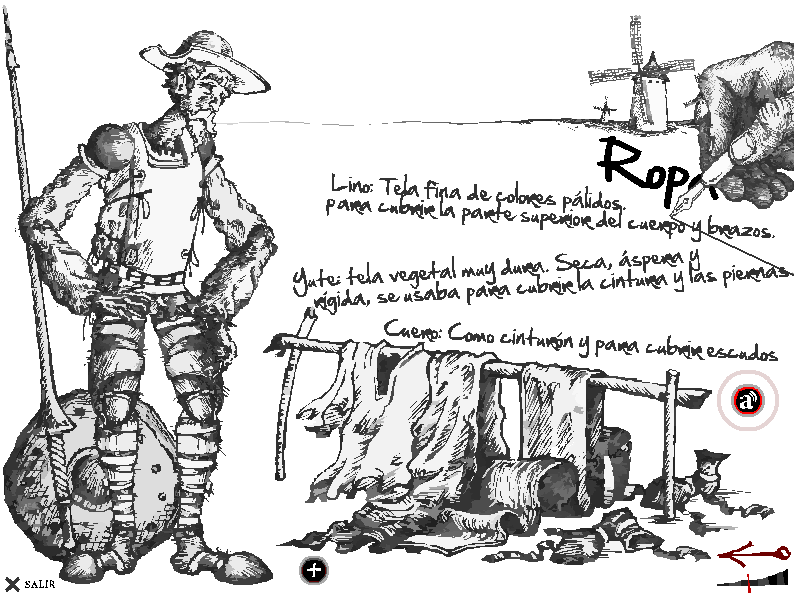 Ropa
Lino: Tela fina de colores pálidos,
para cubrir la parte superior del cuerpo y brazos.
Yute: tela vegetal muy dura. Seca, áspera y
rígida, se usaba para cubrir la cintura y las piernas.
Cuero: Como cinturón y para cubrir escudos
a
SALIR